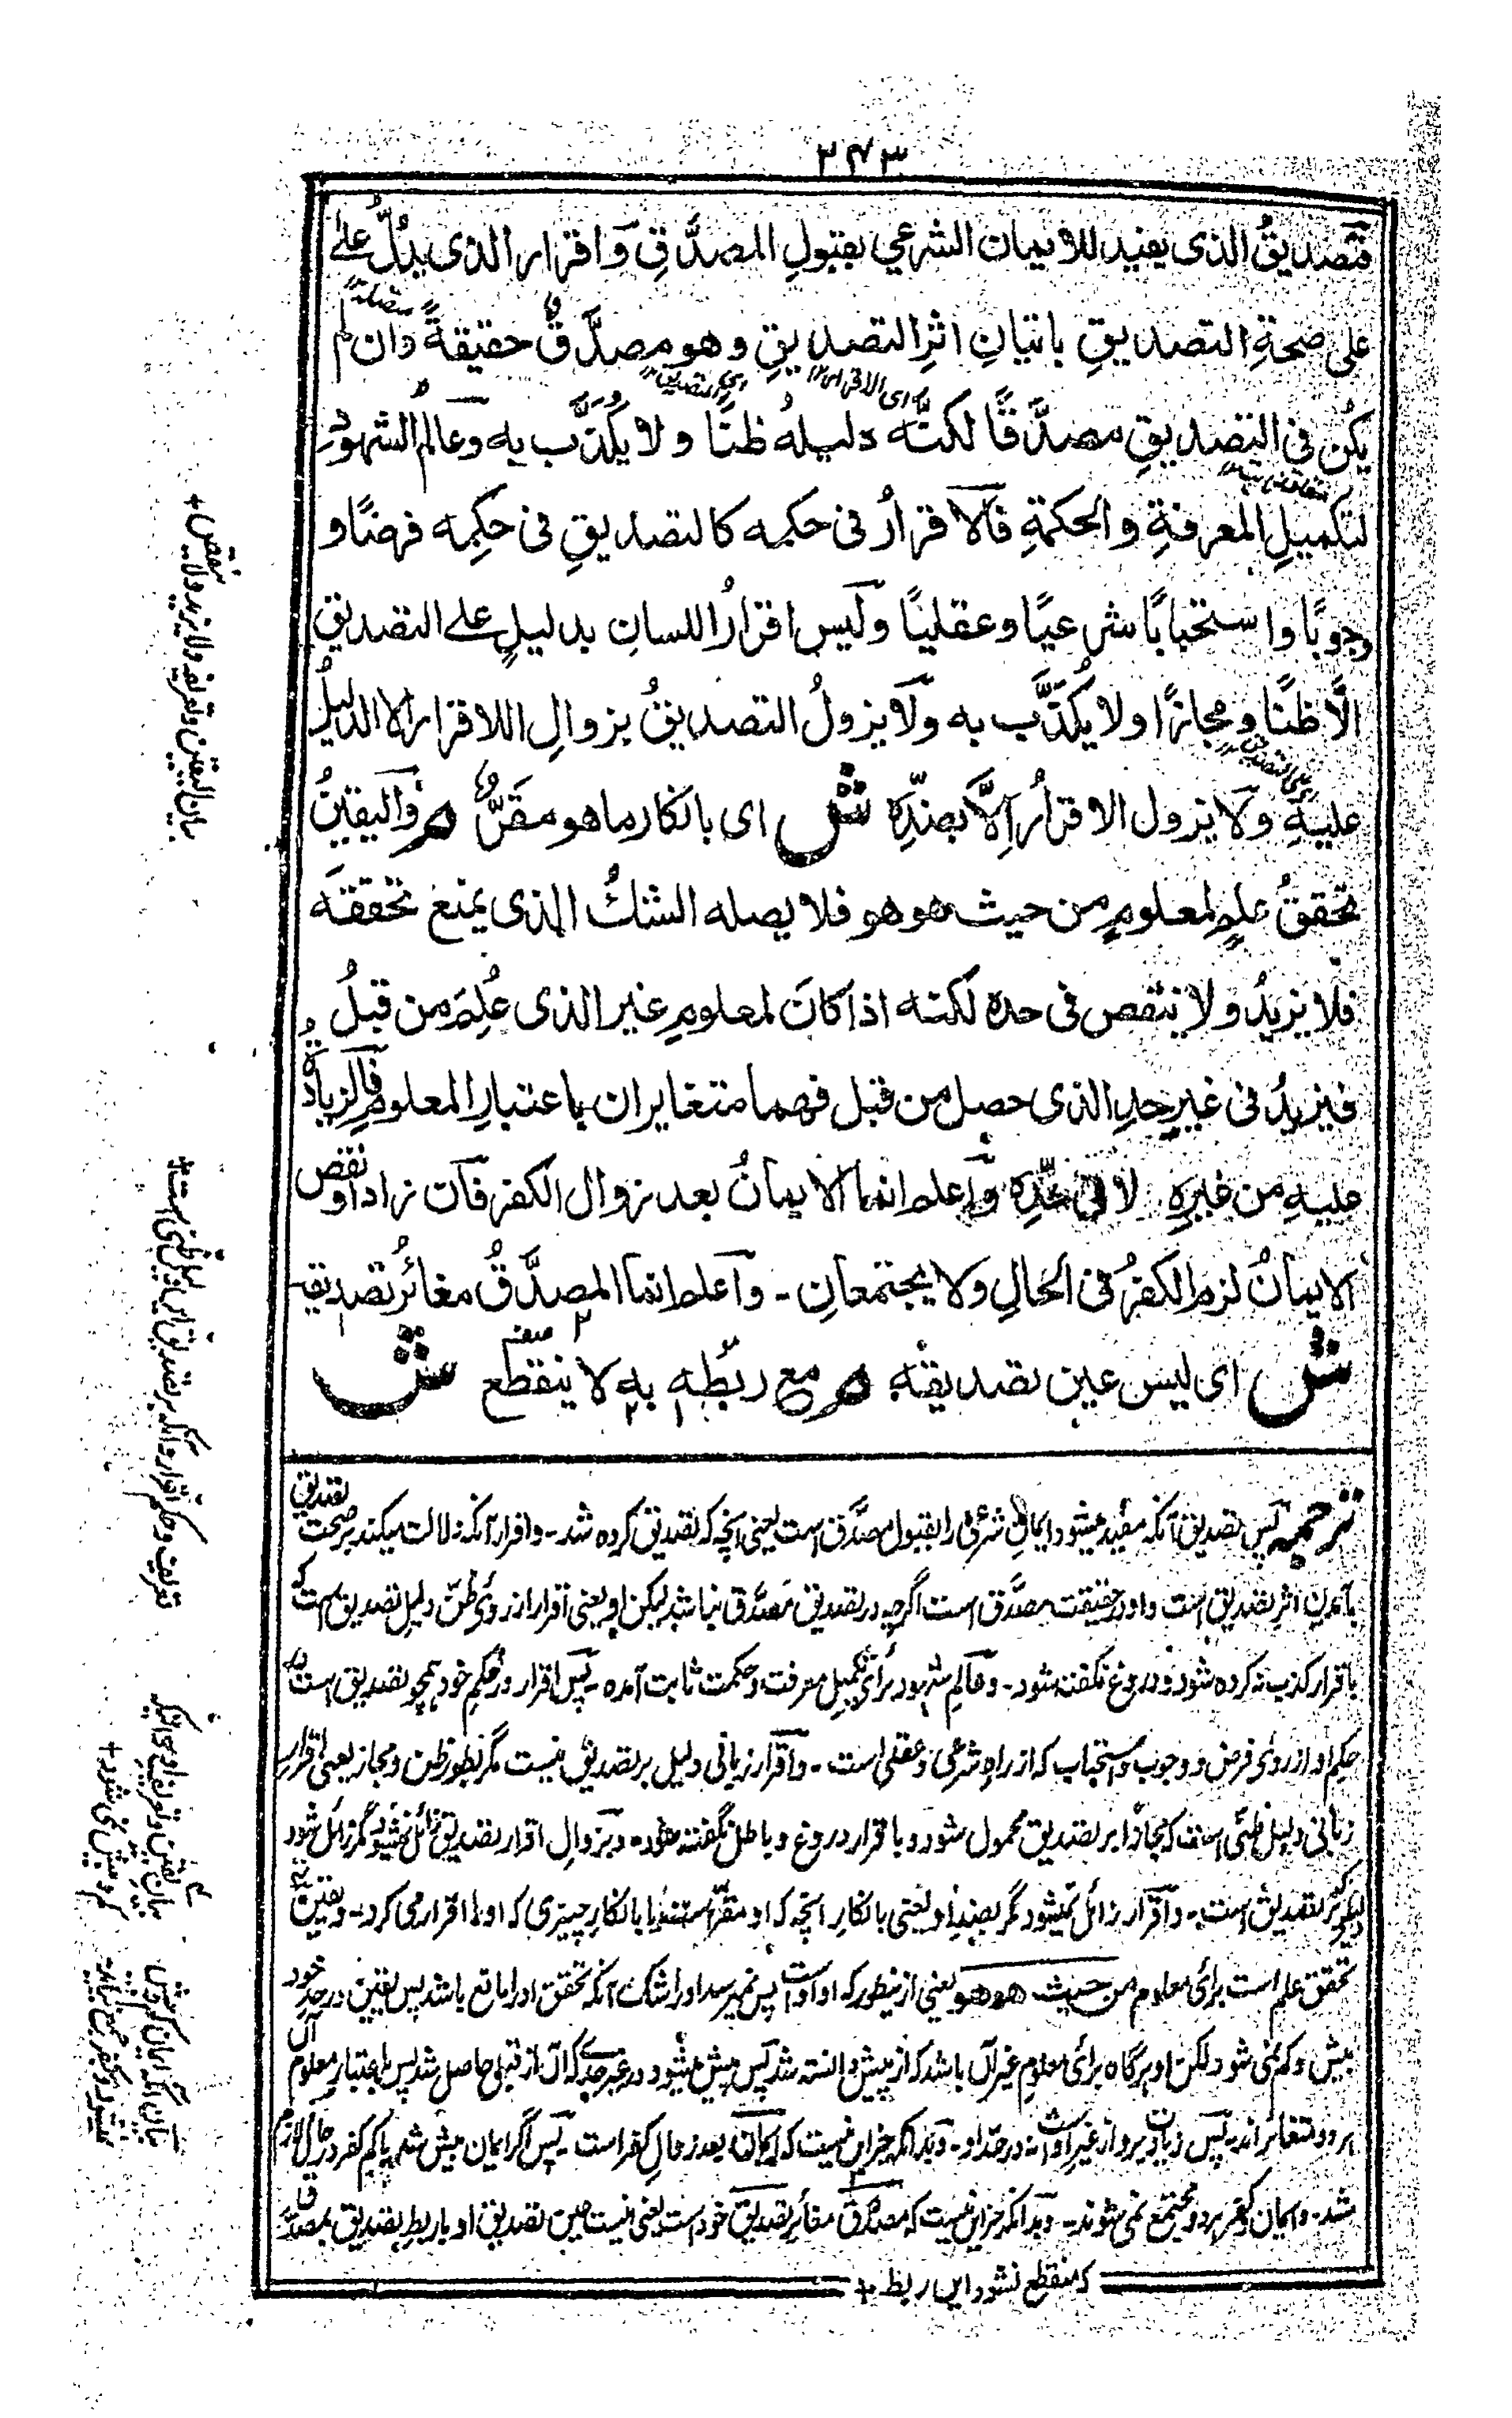 ۲۷۳
فتصديقُ الذى يفيد للايمان الشرعي بقبولِ المصدَّقِ وَاقرار الذى يدُلُّ علىٰ
على صحةِ التصديقِ باتيانِ اثرِ التصديقِ وهو مصدَّقٌ حقيقةً وان لم
يكُن فى التصديقِ مصدَّقًا لكنَّه دليلهُ ظنًا ولا يكذَّب به وعالم الشهود
لتكميلِ المعرفةِ والحكمةِ فالاقرارُ فى حكمه كالتصديقِ فى حكمِه فرضًا و
وجوبًا واستحبابًا شرعيًا وعقليًا وليس اقرارُ اللسانِ بدليلٍ على التصديق
الَّا ظنًا ومجازًا ولا يُكذَّب به ولا يزولُ التصديقُ بزوالِ اللاقرار الا الدليلُ
عليهِ ولا يزول الاقرارُ اِلَّا بضدِّه ش اى بانكار ما هو مقَرٌّ م واليقينُ
تحققُ علمٍ لمعلومٍ من حيث هو هو فلا يصله الشكُ الذى يمنع تحققَه
فلا يزيدُ ولا ينقص فى حده لكنه اذا كانَ لمعلومٍ غير الذى عُلِمَ من قبلُ
فيزيدُ فى غيرِ حدِ الذى حصل من قبل فهما متغايران باعتبارِ المعلومِ فالزيادةُ
عليهِ من غيرِه لا فى حَدِّه وَاعلم انما الايمانُ بعد زوال الكفر فان زاد او نقص
الايمانُ لزم الكفرُ فى الحالِ ولا يجتمعانِ - واعلم انما المصدَّقُ مغائرُ تصديقه
ش اى ليس عين تصديقه م مع ربطِه به لا ينقطع ش
ترجمه پس تصديق آنكه مفيد ميشود ايمانِ شرعى را بقبول مصدَّق است يعنى آنچه كه تصديق كرده شد - واقرار آنكه دلالت ميكند بر صحت تصديق
بآمدن اثر تصديق است و او در حقيقت مصدَّق است اگرچه در تصديق مَصدَّق نباشد ليكن او يعنى اقرار از روئ ظن دليل تصديق است كه
باقرار كذب نه كرده شود و دروغ نگفته شود - وعالم شهود برائ تكميل معرفت وحكمت ثابت آمده - پس اقرار در حكم خود همچو تصديق است
حكم او از روئ فرض ووجوب واستحباب كه از راه شرعى وعقلى است - واقرار زبانى دليل بر تصديق نيست مگر بطور ظن ومجاز يعنى اقرار
زبانى دليل ظنى است كه مجازًا بر تصديق محمول شود و باقرار دروغ و باطل نگفته شود - وبزوالِ اقرار تصديق زائل نميشود مگر زائل شود
دليل كه بر تصديق است - واقرار زائل نميشود مگر بضد او يعنى بانكار آنچه كه او مقر است يا بانكار چيزى كه او را اقرار مى كرد - ويقين
تحقق علم است برائ معلوم من حيث هو هو يعنى ازينطور كه او اوست پس نميرسد او را شك آنكه تحقق او را مانع باشد پس يقين در حد خود
بيش وكم نمى شود ولكن او هرگاه برائ معلوم غير آن باشد كه از پيش دانسته شد پس بيش ميشود در غير حدى كه آن از قبل حاصل شد پس باعتبار معلوم آن
هر دو متغائر اند پس زيادت برو از غير اوست نه در حد او - وبدانكه جز اين نيست كه ايمان بعد زوال كفر است - پس اگر ايمان بيش شد يا كم كفر در حال لازم
شد - وايمان وكفر هر دو مجتمع نمى شوند - وبدانكه جز اين نيست كه مصدَّق مغائر تصديق خود است يعنى نيست عين تصديق او با ربطِ تصديق بمصدَّق
كه منقطع نشود اين ربط +